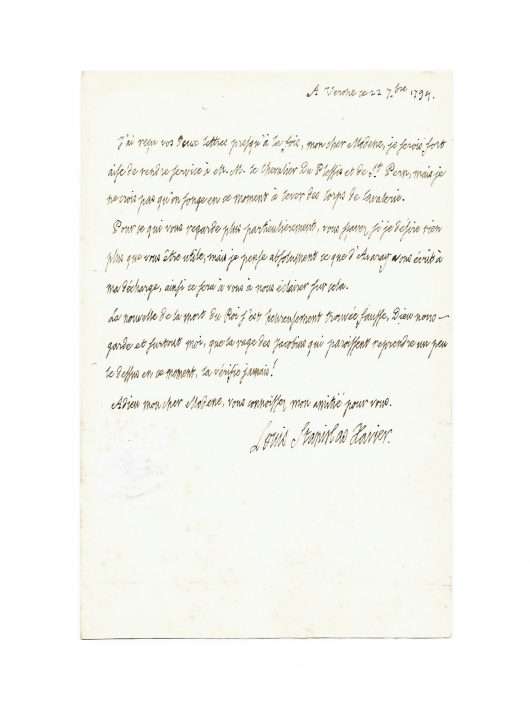 A Verone ce 22 7.bre 1794.
J'ai reçu vos deux lettres presqu'à la fois, mon cher Modene, je serois fort
aise de rendre service à M. M. le Chevalier du Plessis et de St. Pern, mais je
ne crois pas qu'on songe en ce moment à lever des corps de Cavalerie.
Pour ce qui vous regarde plus particulierement, vous sçavez si je desire rien
plus que vous être utile, mais je pense absolument ce que d'Avaray vous écrit à
ma décharge, ainsi ce sera à vous à nous éclairer sur cela.
La nouvelle de la mort du Roi s'est heureusement trouvée fausse, Dieu nous
garde et surtout moi, que la rage des Jacobins qui paroissent reprendre un peu
le dessus en ce moment, la vérifie jamais!
Adieu mon cher Modene, vous connoissez mon amitié pour vous.
Louis Stanislas Xavier.